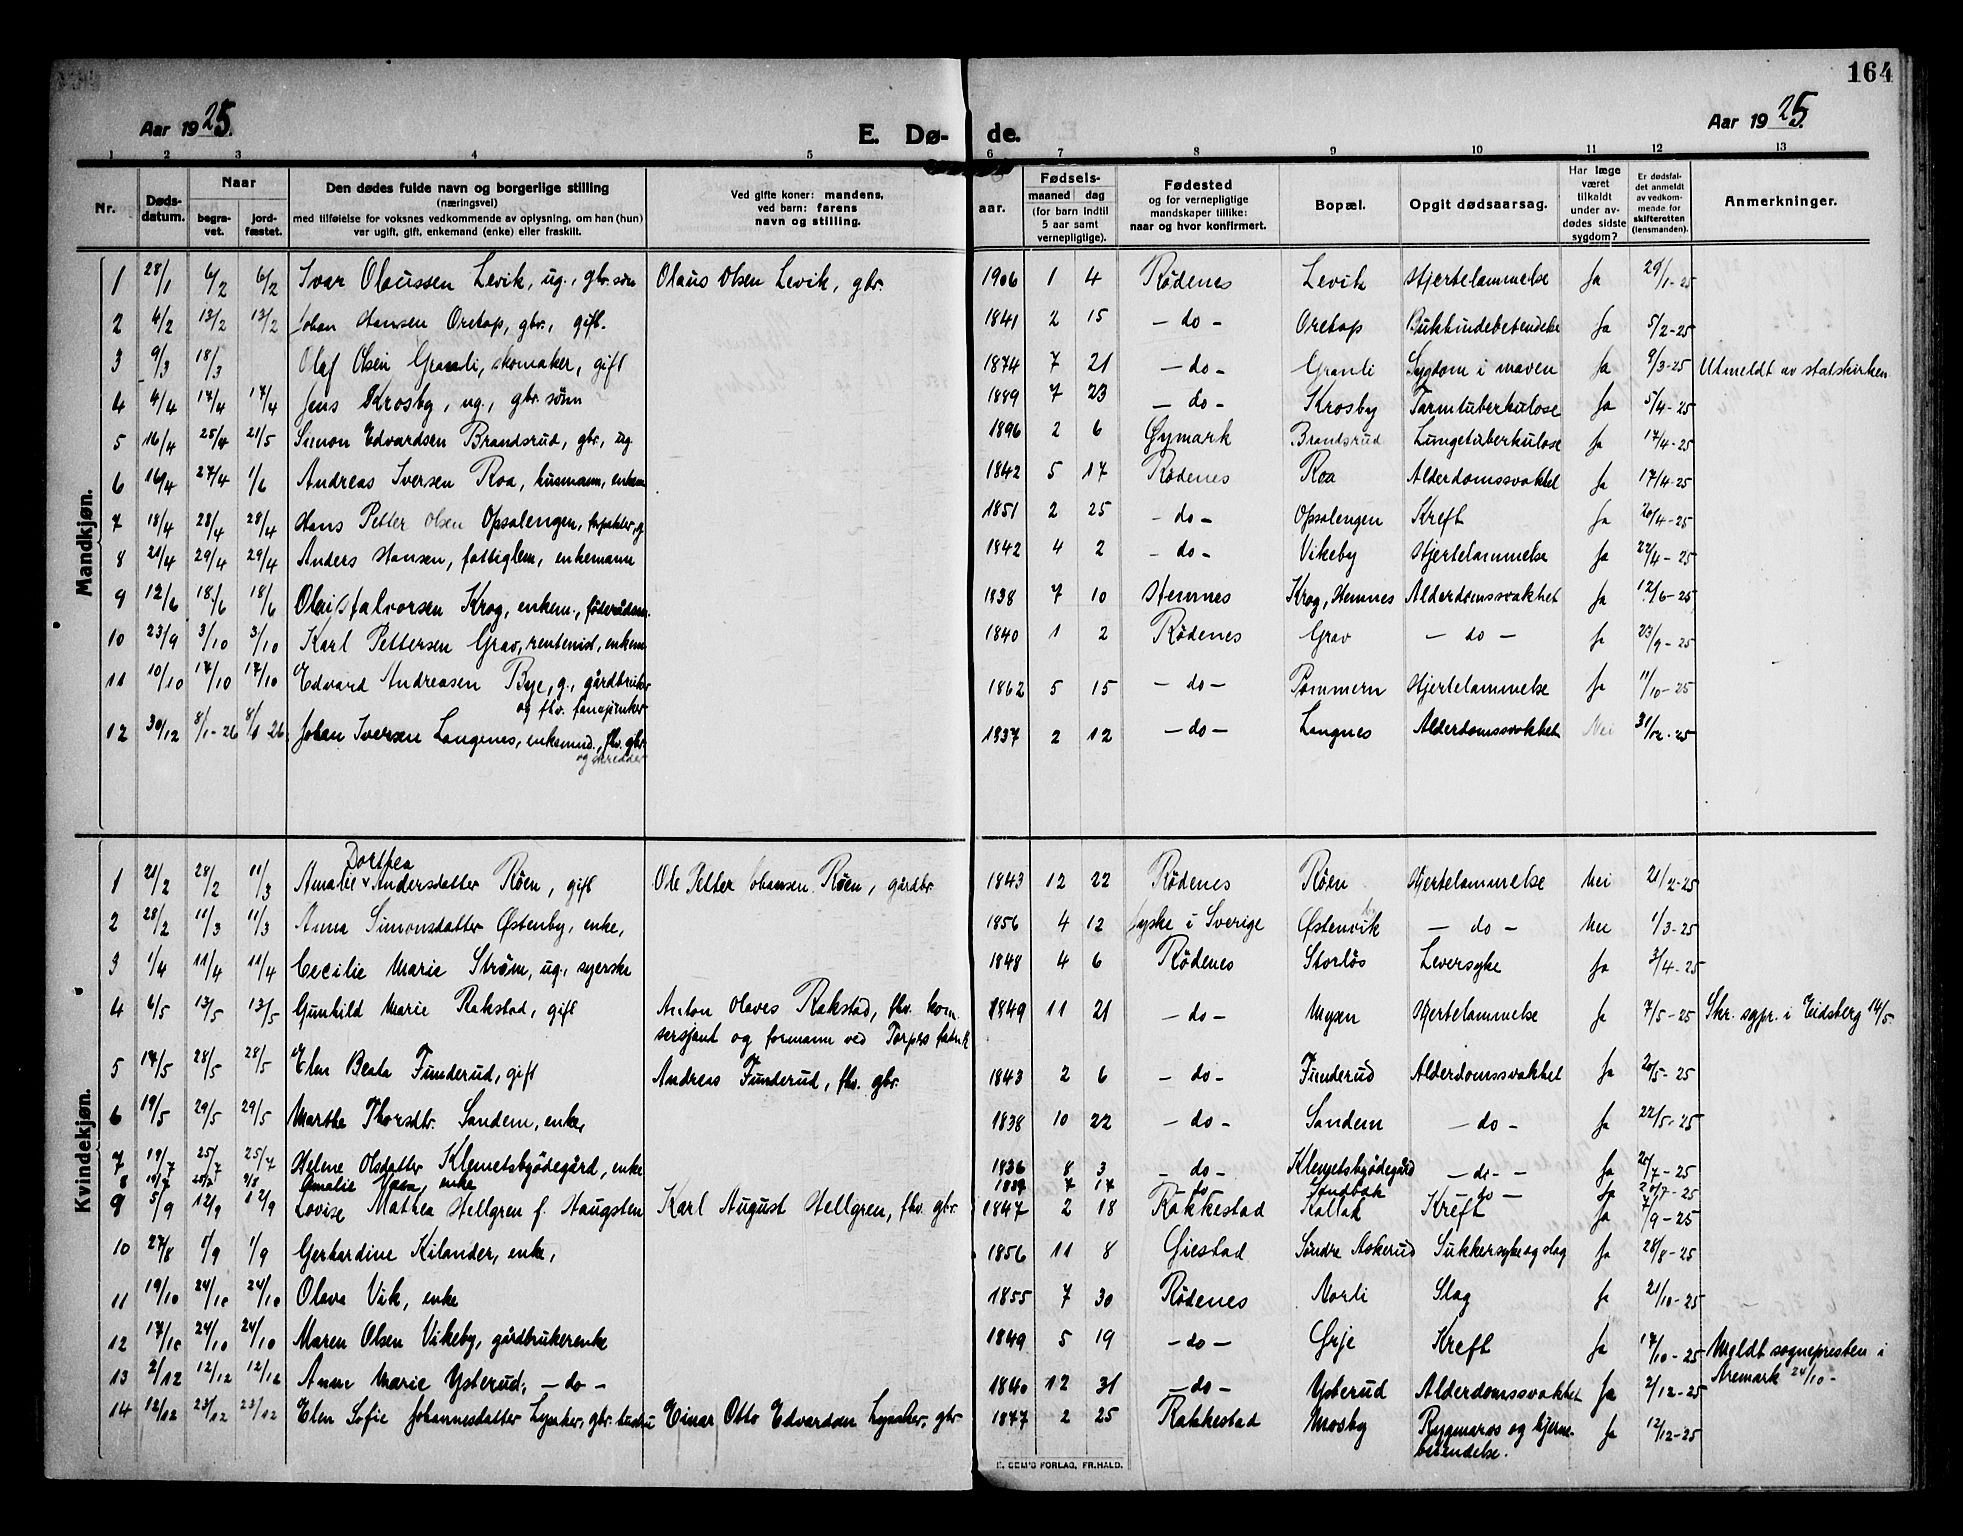 164
Aar 1925. E. Dø- de. Aar 1925.
1 2 3 4 5 6 7 8 9 10 11 12 13
Nr. Døds-datum. Naar begra-vet. jord-fæstet. Den dødes fulde navn og borgerlige stilling (næringsvei) med tilføielse for voksnes vedkommende av oplysning, om han (hun) var ugift, gift, enkemand (enke) eller fraskilt. Ved gifte koner: mandens, ved barn: farens navn og stilling. Fødsels- aar. maaned dag (for barn indtil 5 aar samt vernepligtige). Fødested og for vernepligtige mandskaper tillike: naar og hvor konfirmert. Bopæl. Opgit dødsaarsag. Har læge været tilkaldt under av-dødes sidste sygdom? Er dødsfal-det anmeldt av vedkom-mende for skifteretten (lensmanden). Anmerkninger.
Mandkjøn.
1 28/1 6/2 6/2 Ivar Olaussen Levik, ug., gbr. søn Olaus Olsen Levik, gbr. 1906 1 4 Rødenes Levik Hjertelammelse Ja 29/1-25
2 4/2 13/2 13/2 Johan Hansen Oretop, gbr., gift. 1841 2 15 - do - Oretop Bukhindebetendelse Ja 5/2-25
3 9/3 18/3 Olaf Olsen Granli, skomaker, gift 1874 7 21 - do - Granli Sygdom i maven Ja 9/3-25 Utmeldt av statskirken
4 4/4 17/4 17/4 Jens Krosby, ug., gbr. sønn 1889 7 23 - do - Krosby Tarmtuberkulose Ja 5/4-25
5 16/4 25/4 21/5 Simon Edvardsen Brandsrud, gbr, ug 1896 2 6 Øymark Brandsrud Lungetuberkulose Ja 17/4-25
6 16/4 27/4 1/6 Andreas Iversen Roa, husmann, enkem 1842 5 17 Rødenes Roa Alderdomssvakhet Ja 17/4-25
7 18/4 28/4 28/4 Hans Petter Olsen Opsalengen, forpakter, g 1851 2 25 - do - Opsalengen Kreft Ja 20/4-25
8 21/4 29/4 29/4 Anders Hansen, fattiglem, enkemann 1842 4 2 - do - Vikeby Hjertelammelse Ja 22/4-25
9 12/6 18/6 18/6 Olaus Halvorsen Krog, enkem., føderådsm. 1838 7 10 Hemnes Krog, Hemnes Alderdomssvakhet Ja 12/6-25
10 23/9 3/10 3/10 Karl Pettersen Grav, rentenist, enkem 1840 1 2 Rødenes Grav - do - Ja 23/9-25
11 10/10 17/10 17/10 Edvard Andreasen Bye, g., gårdbruker 1862 5 15 - do - Pommern Hjertelammelse Ja 11/10-25
og fhv. fanejunker
12 30/12 8/1-26 8/1 26 Johan Iversen Langenes, enkemnd., fhv. gbr. 1837 2 12 - do - Langnes Alderdomssvakhet Nei 31/12-25
og skredder
Kvindekjøn.
Dorthea
1 21/2 28/2 11/3 Amalie Andersdatter Røen, gift Ole Petter Johansen Røen, gårdbr. 1843 12 22 Rødenes Røen Hjertelammelse Nei 21/2-25
2 28/2 11/3 11/3 Anna Simonsdatter Østenby, enke, 1856 4 12 i Sverige Østenvik - do - Nei 1/3-25
3 1/4 11/4 11/4 Cecilie Marie Strøm, ug., syerske 1848 4 6 Rødenes Storløs Leversyke Ja 3/4-25
4 6/5 13/5 13/5 Gunhild Marie Rakstad, gift Anton Olaves Rakstad, fhv. kom 1849 11 21 - do - Mysen Hjertelammelse Ja 7/5-25 Skr. sgpr. i Eidsberg 14/5.
sersjant og formann ved Torps fabrik
5 17/5 28/5 28/5 Elen Beate Funderud, gift Andreas Funderud, fhv. gbr. 1843 2 6 - do - Funderud Alderdomssvakhet Ja 20/5-25
6 19/5 29/5 29/5 Marthe Thorsdtr. Sandem, enke, 1838 10 22 - do - Sandem - do - Ja 22/5-25
7 19/7 25/7 25/7 Helene Olsdatter Klemetsbyødegård, enke 1836 8 3 - do - Klemetsbyødegård - do - Ja 20/7-25
8 Amalie enke 7 17 - do - Sandbæk do - Ja 20/7-25
9 5/9 12/9 12/9 Lovise Mathea Hellgren f. Haugsten Karl August Hellgren, fhv. gbr. 1847 2 18 Rakkestad Kallak Kreft Ja 7/9-25
10 27/8 1/9 1/9 Gerhardine Kilander, enke, 1856 11 8 Giestad Søndre Askerud Sukkersyke og slag Ja 28/8-25
11 19/10 24/10 24/10 Olava Vik, enke 1855 7 30 Rødenes Norli Slag Ja 21/10-25
12 17/10 24/10 24/10 Maren Olsen Vikeby, gårdbrukerenke 1849 5 19 - do - Ørje Kreft Ja 17/10-25 Meldt sognepresten i
Aremark 24/10-
13 2/12 12/12 12/12 Anne Marie Ysterud, - do - 1840 12 31 - do - Ysterud Alderdomssvakhet Ja 2/12-25
14 12/12 23/12 23/12 Elen Sofie Johannesdatter Lysaker, gbr. hustru Einar Otto Edvardsen Lysaker, gbr. 1847 2 25 Rakkestad Mosby Rygmargs og hjerne- Ja 12/12-25
betendelse.
FORLAG, FR.HALD.